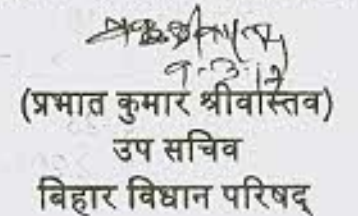 9-3-17
(प्रभात कुमार श्रीवास्तव)
उप सचिव
बिहार विधान परिषद्